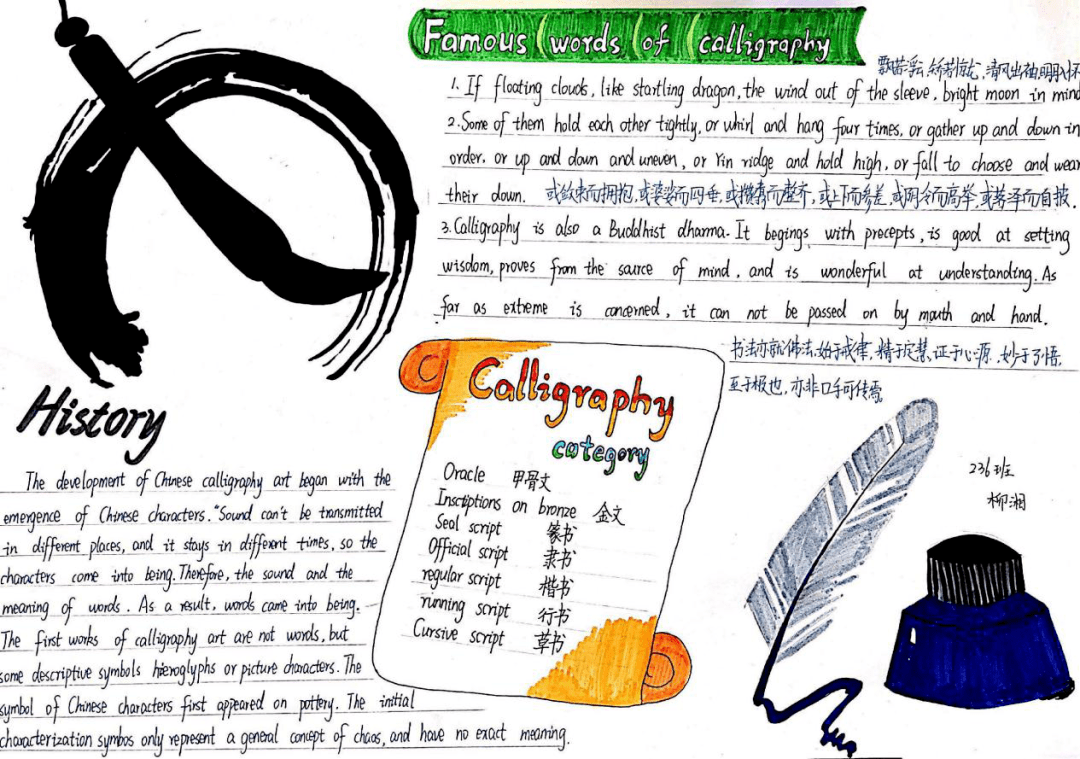 Famous words of calligraphy
飘若浮云,矫若惊龙,清风出袖,明月入怀
1. If floating clouds, like startling dragon, the wind out of the sleeve, bright moon in mind
2. Some of them hold each other tightly, or whirl and hang four times, or gather up and down in
order. or up and down and uneven, or Yin ridge and hold high, or fall to choose and wear
their down. 或敛束而相抱,或婆娑而四垂,或攒剪而整齐,或上下而参差,或阴岑而高举,或落泽而自披.
3. Calligraphy is also a Buddhist dharma. It begings with precepts, is good at setting
wisdom, proves from the saurce of mind, and is wonderful at understanding. As
far as extreme is concerned, it can not be passed on by mouth and hand.
书法亦就佛法,始于戒律,精于定慧,证于心源,妙于了悟,
至于极也,亦非口手可传焉
History
The development of Chinese calligraphy art began with the
emergence of Chinese characters. "Sound can't be transmitted
in different places, and it stays in different times, so the
characters come into being. Therefore, the sound and the
meaning of words. As a result, words came into being.
The first works of calligraphy art are not words, but
some descriptive symbols hieroglyphs or picture characters. The
symbol of Chinese characters first appeared on pottery. The initial
characterization symbos only represent a general concept of chaos, and have no exact meaning.
Calligraphy
category
Oracle 甲骨文
Insctiptions on bronze 金文
Seal script 篆书
Official script 隶书
regular script 楷书
running script 行书
Cursive script 草书
236班
柳湘